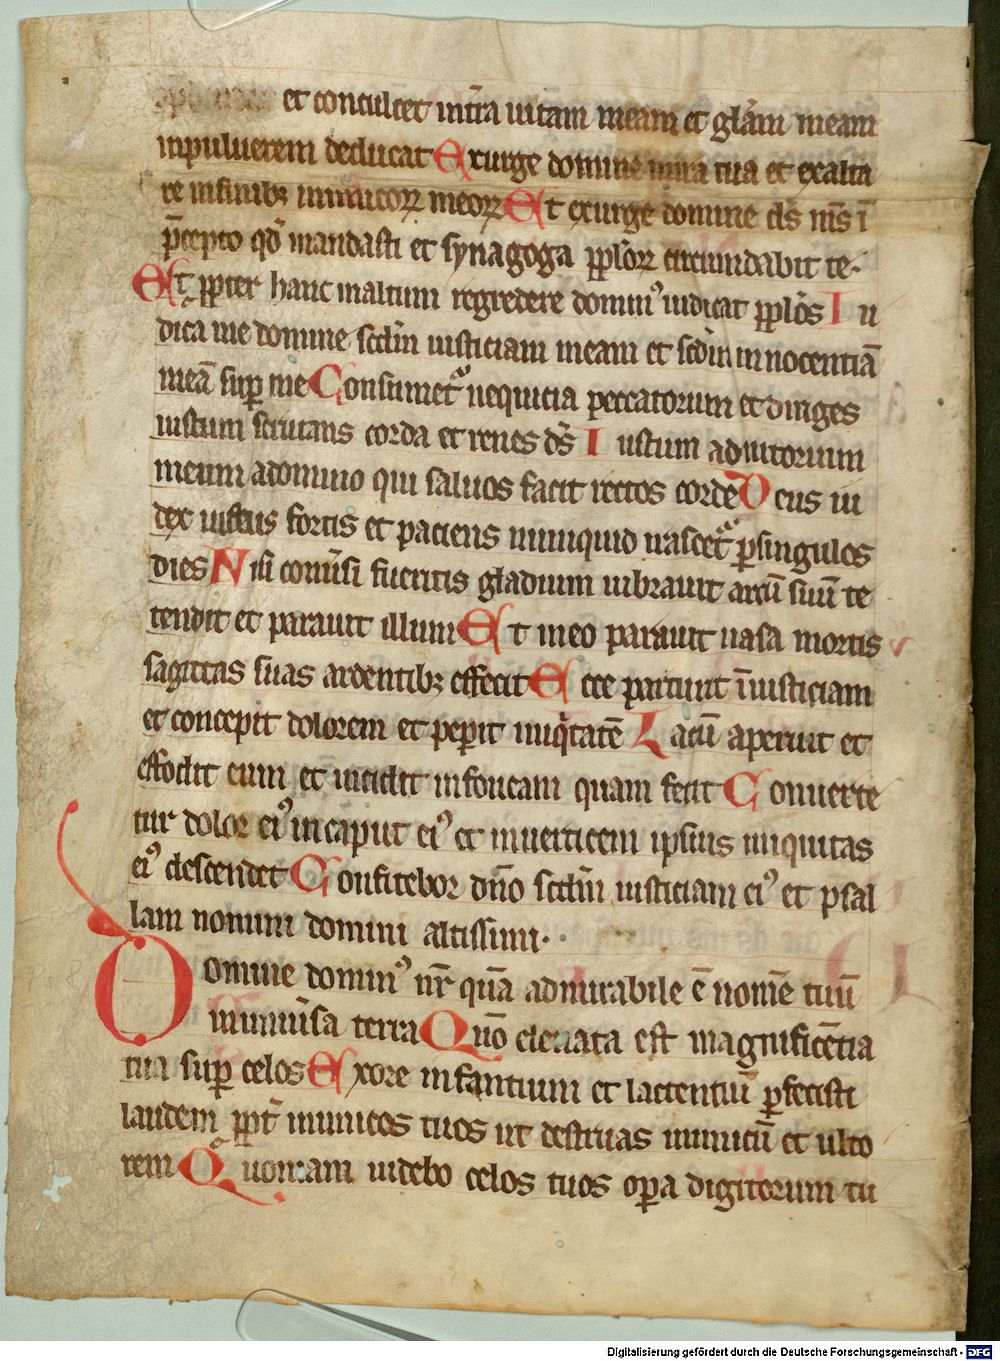 et conculcet int̄ra uitam meam et gl̄am meam
inpuluerem deducat Exurge domine inira tua et exalta
re infinibꝫ inimicoꝝ meoꝝ Et exurge domine ds̄ ms̄ ī
p̄cepto qd̄ mandasti et synagoga ppl̄oꝝ circundabit te·
Et ꝓpter hanc inaltum regredere domin᾽ iudicat ppl̄os Iu
dica me domine scd̄m iusticiam meam et scd̄m innocentiā
meā suꝑ me Consumet᷑ nequicia peccatorum et diriges
iustum scrutans corda et renes ds̄ Iustum adiutorium
meum adomino qui saluos facit rectos corde Deus iu
dex iustus fortis et paciens nunquid irascet᷑ ꝑsingulos
dies Nisi conuersi fueritis gladium uibrauit arcū suū te
tendit et parauit illum Et ineo parauit uasa mortis
sagittas suas ardentibꝫ effecit Ecce parturit īiusticiam
et concepit dolorem et peperit iniqitatē Lacū aperuit et
effodit eum et incidit infoueam quam fecit Conuerte
tur dolor ei᾽ incaput ei᾽ et inuerticem ipsius iniquitas
ei᾽ descendet Confitebor dn̄o scd̄m iusticiam ei᾽ et psal
lam nomini domini altissimi·
Domine domin᾽ nr̄ quā admirabile ē nomē tuū
inuniūsa terra Quō eleuata est magnificētia
tua suꝑ celos Exore infantium et lactentiū ꝑfecisti
laudem ꝓpt̄ inimicos tuos ut destruas inimicū et ulto
rem Quoniam uidebo celos tuos opera digitorum tu
Digitalisierung gefördert durch die Deutsche Forschungsgemeinschaft - DFG